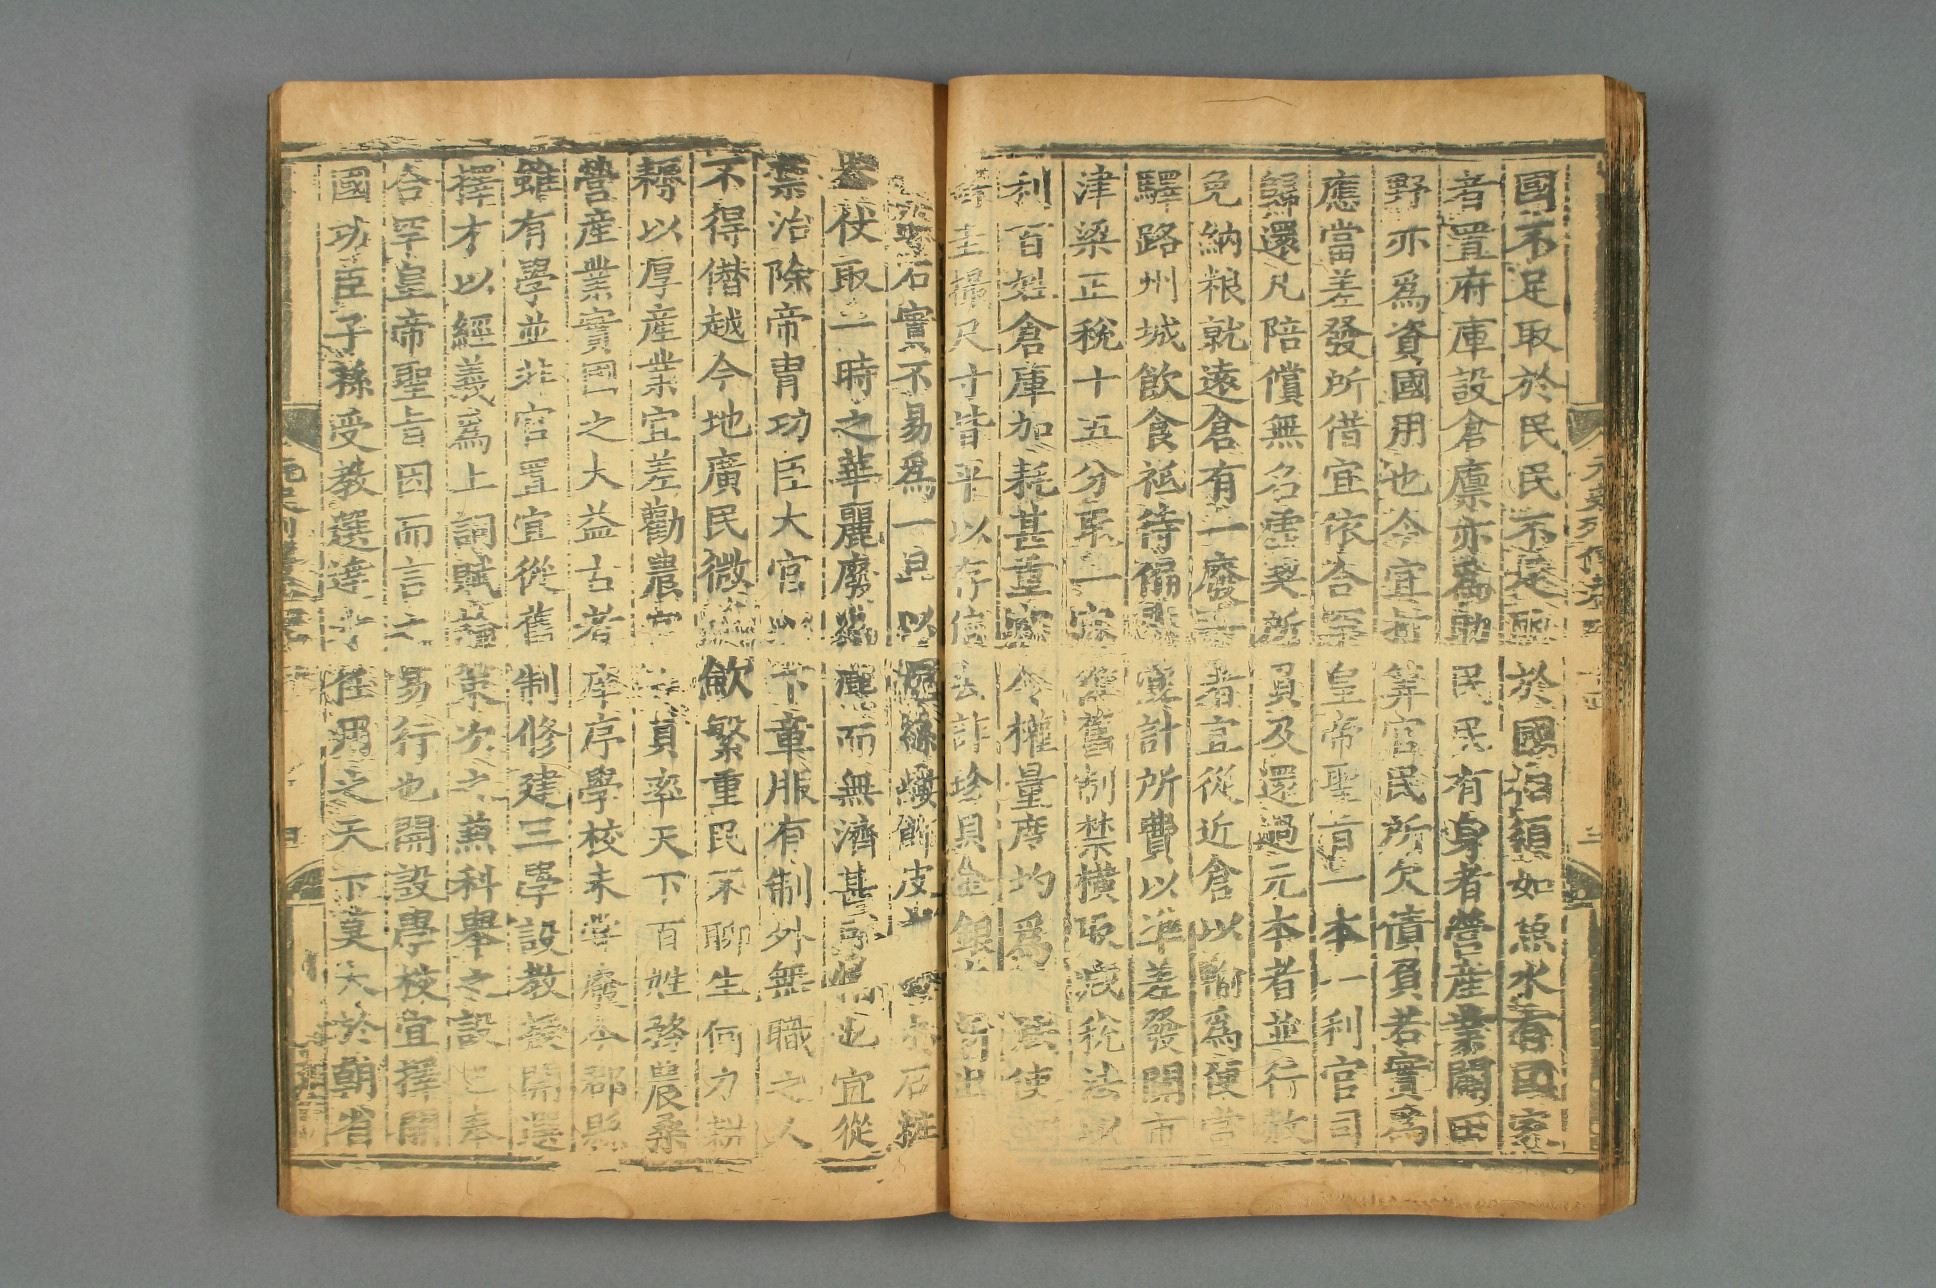 國不足取於民民不足取於國相須如魚水有國家
者置府庫設倉廩亦為助民民有身者營產業闢田
野亦為資國用也今宜打算官民所欠債負若實為
應當差發所借宜依合罕皇帝聖旨一本一利官司
歸還凡陪償無名虛契所負及還過元本者並行赦
免納粮就遠倉有一廢十者宜從近倉以輸為便當
驛路州城飲食祗待偏重宜計所費以準差發關市
津梁正稅十五分取一宜從舊制禁橫取減稅法以
利百姓倉庫加耗甚重宜令權量度均為一法使錙
銖圭撮尺寸皆平以存信去詐珍貝金銀之所出淘
石實不易為一旦以纏絲縷飾皮革塗木石粧
器仗取一時之華麗廢為塵而無濟甚可惜也宜從
禁治除帝冑功臣大官以下章服有制外無職之人
不得僣越今地廣民微賦斂繁重民不聊生何力耕
耨以厚產業宜差勸農官一員率天下百姓務農桑
營產業實國之大益古者庠序學校未嘗廢今郡縣
雖有學並非官置宜從舊制修建三學設教授開選
擇才以經義為上詞賦論策次之兼科舉之設已奉
合罕皇帝聖旨因而言之易行也開設學校宜擇開
國功臣子孫受教選達才任用之天下莫大於朝省